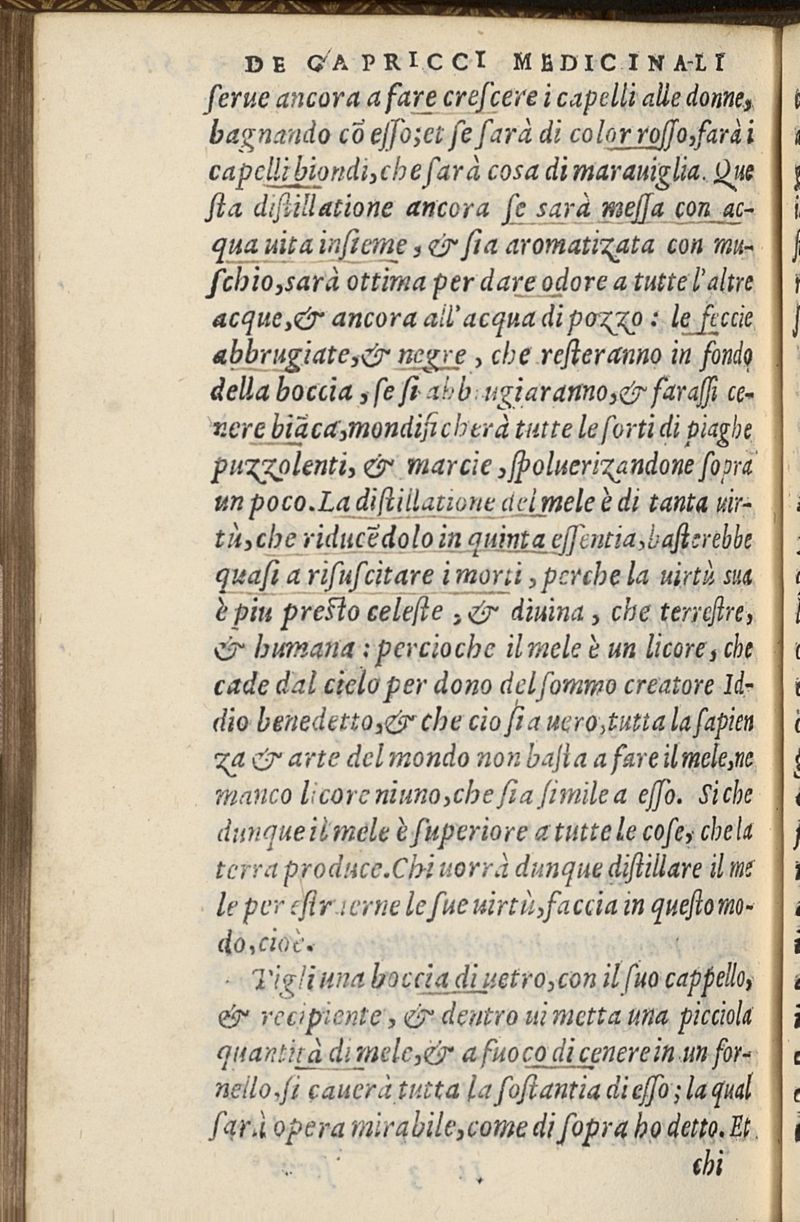 DE CAPRICCI MEDICINALI
ſerue ancora a fare creſcere i capelli alle donne,
bagnando cō eſſo;et ſe ſarà di color roſſo,farà i
capelli biondi,che ſarà coſa di marauiglia. Que
ſta diſtillatione ancora ſe sarà meſſa con ac-
qua uita inſieme, & ſia aromatizata con mu-
ſchio,sarà ottima per dare odore a tutte l'altre
acque,& ancora all'acqua di pozzo: le feccie
abbrugiate,& negre, che reſteranno in fondo
della boccia, ſe ſi abbrugiaranno,& faraſſi ce-
nere biāca,mondificherà tutte le ſorti di piaghe
puzzolenti, & marcie, ſpoluerizandone ſopra
un poco.La diſtillatione del mele è di tanta uir-
tù,che riducēdolo in quinta eſſentia,baſterebbe
quaſi a riſuſcitare i morti, perche la uirtù sua
è piu presto celeſte, & diuina, che terreſtre,
& humana: percioche il mele è un licore, che
cade dal cielo per dono del ſommo creatore Id-
dio benedetto,& che cio ſia uero,tutta la ſapien
za & arte del mondo non baſta a fare il mele,ne
manco licore niuno,che ſia ſimile a eſſo. Si che
dunque il mele è ſuperiore a tutte le coſe, che la
terra produce.Chi uorrà dunque diſtillare il me
le per eſtraerne le ſue uirtù,faccia in queſto mo-
do,cioè.
Pigli una boccia di uetro,con il ſuo cappello,
& recipiente, & dentro ui metta una picciola
quantità di mele,& a fuoco di cenere in un for-
nello,ſi cauerà tutta la ſoſtantia di eſſo; la qual
ſarà opera mirabile,come di ſopra ho detto. Et
chi